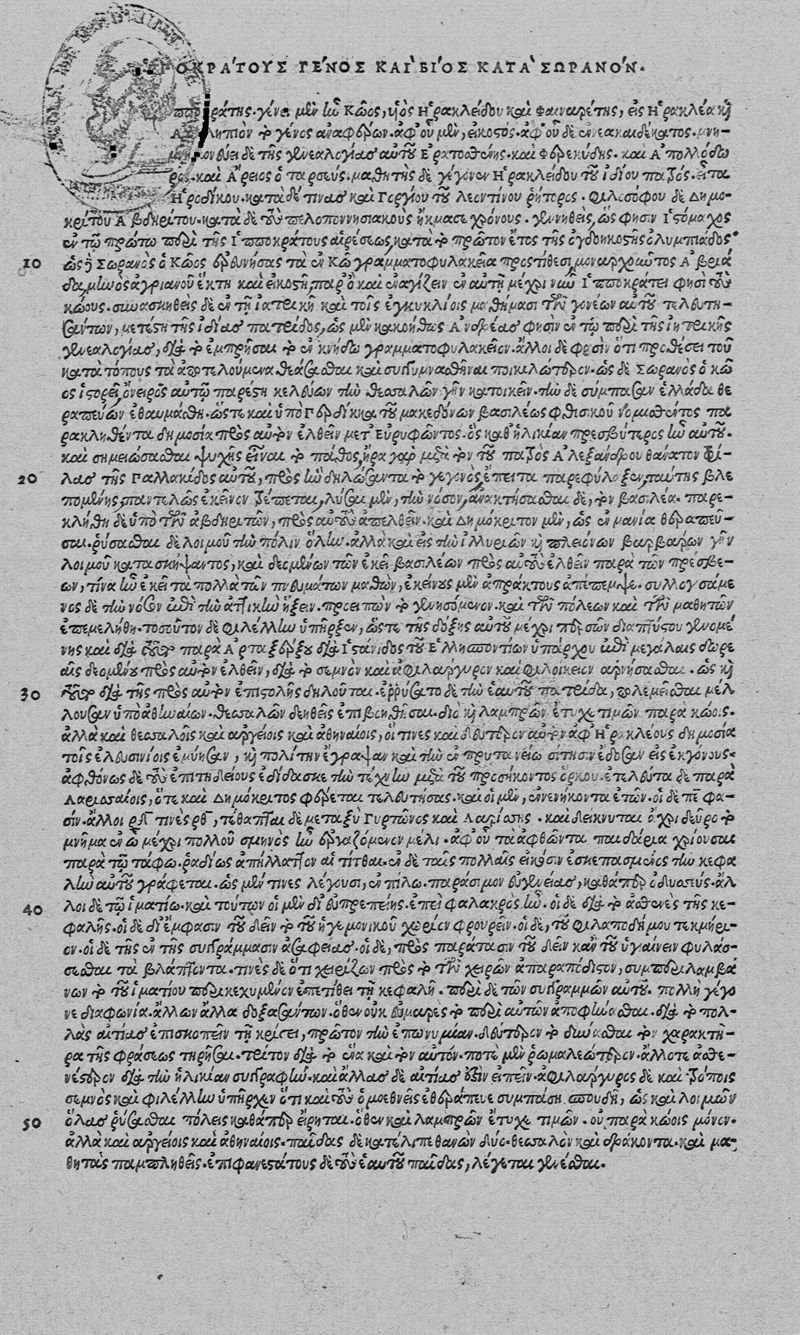 ΙΠΠΟΚΡΑ´ΤΟΥΣ ΓΕ´ΝΟΣ ΚΑΙ` ΒΙ´ΟΣ ΚΑΤΑ` ΣΩΡΑΝΟ´Ν.
πποκράτης. γένει μὲν ἦν Κῶος, υἱὸς Ἡρακλείδου καὶ Φαιναρέτης, εἰς Ἡρακλέα κỳ
Ἀσκληπιὸν τὸ γένος ἀναφέρων. ἀφ' οὗ μὲν, εἰκοστός. ἀφ' οὗ δὲ ἐννεακαιδέκατος. μνη-
μονεύει δὲ τῆς γενεαλογίας αὐτοῦ Ἐρατοσθένης. καὶ Φερεκύδης. καὶ Ἀπολλόδω
ρος. καὶ Ἄρειος ὁ ταρσεύς. μαθητὴς δὲ γέγονεν Ἡρακλείδου τοῦ ἰδίου πατρός. εἶτα
Ἡροδίκου. κατὰ δέ τινας καὶ Γοργίου τοῦ λεοντίνου ῥήτορος. φιλοσόφου δὲ Δημο-
κρίτου Ἀβδηρίτου. κατὰ δὲ τοὺς πελοποννησιακοὺς ἤκμασε χρόνους. γεννηθεὶς, ὥς φησιν Ἰστόμαχος
10 ἐν τῷ πρώτῳ περὶ τῆς Ἱπποκράτους αἱρέσεως, κατὰ τὸ πρῶτον ἔτος τῆς ὀγδοηκοστῆς ὀλυμπιάδος
ὡς ἢ Σωρανὸς ὁ Κῶος ἐρευνήσας τὰ ἐν Κῷ γραμματοφυλακεῖα προστίθησι, μοναρχοῦντος Ἀβριά
δα, μηνὸς ἀγριανοῦ ἕκτῃ καὶ εἰκοστῇ, παρ' ὃ καὶ ἐναγίζειν ἐν αὐτῇ μέχρι νῦν Ἱπποκράτει φησὶ τοὺς
κώους. συνασκηθεὶς δὲ ἐν τῇ ἰατρικῇ καὶ τοῖς ἐγκυκλίοις μαθήμασι τῶν γονέων αὐτοῦ τελευτη-
σάντων, μετέστη τῆς ἰδίας πατρίδος, ὡς μὲν κακοήθως Ἀνδρέας φησὶν ἐν τῷ περὶ τῆς ἰητρικῆς
γενεαλογίας, διὰ τὸ ἐμπρῆσαι τὸ ἐν κνίδῳ γραμματοφυλακεῖον. ἄλλοι δέ φασὶν ὅτι προθέσει τοῦ
κατὰ τόπους τὰ ἀποτελούμενα θεάσασθαι καὶ συγγυμνασθῆναι ποικιλώτερον. ὡς δὲ Σωρανὸς ὁ κῶ
ος ἱστορεῖ, ὄνειρος αὐτῷ παρέστη κελεύων τὴν θεσσαλῶν γῆν κατοικεῖν. τὴν δὲ σύμπασαν ἑλλάδα θε
ραπεύων ἐθαυμάσθη. ὥστε καὶ ὑπὸ Περδίκκα τοῦ μακεδόνων βασιλέως φθισικοῦ νομισθέντος πα
ρακληθέντα δημοσίᾳ πρὸς αὐτὸν ἐλθεῖν μετ' Εὐρυφῶντος. ὃς καθ' ἡλικίαν πρεσβύτερος ἦν αὐτοῦ.
καὶ σημειώσασθαι ψυχῆς εἶναι τὸ πάθος, ἤρα γὰρ μετὰ τὸν τοῦ πατρὸς Ἀλεξάνδρου θάνατον Φί-
20 λας τῆς Γαλλακίδος αὐτοῦ, πρὸς ἣν δηλώσαντα τὸ γεγονὸς, ἐπεὶ τὰ παρεφύλαξεν, ταύτης βλε
πομένης, παντελῶς ἐκεῖνον τρέπεται, λῦσαι μὲν, τὴν νόσον, ἀνακτήσασθαι δὲ, τὸν βασιλέα. παρε-
κλήθη δὲ ὑπὸ τῶν ἀβδηριτῶν, πρὸς αὐτοὺς ἀπελθεῖν. καὶ Δημόκριτον μὲν, ὡς ἐν μανίᾳ θεραπεῦ-
σαι. ῥύσασθαι δὲ λοιμοῦ τὴν πόλιν ὅλην. ἀλλὰ καὶ εἰς τὴν ἰλλυριῶν κỳ πλειόνων βαρβάρων γῆν
λοιμοῦ κατασκήψαντος, καὶ δεομένων τῶν ἐκεῖ βασιλέων πρὸς αὐτοὺς ἐλθεῖν παρὰ τῶν πρέσβε-
ων, τίνα ἦν ἐκεῖ τὰ πολλὰ τῶν πνευμάτων μαθὼν, ἐκείνους μὲν ἀπράκτους ἀπέπεμψε. συλλογισάμε
νος δὲ τὴν νόσον ἐπὶ τὴν ἀττικὴν ἥξειν. προειπὼν τὸ γενησόμενον. καὶ τῶν πόλεων καὶ τῶν μαθητῶν
ἐπεμελήθη. τοσοῦτον δὲ φιλέλλην ὑπῆρξεν, ὥστε τῆς δόξης αὐτοῦ μέχρι περσῶν διαπύστου γενομέ
νης καὶ διὰ τοῦτο παρὰ Ἀρταξέρξου διὰ Ἱστάνιδος τοῦ Ἑλλησποντίων ὑπάρχου ἐπὶ μεγάλαις δωρε
αῖς δεομένου πρὸς αὐτὸν ἐλθεῖν, διὰ τὸ σεμνὸν καὶ ἀφιλάργυρον καὶ φιλοίκειον ἀρνήσασθαι. ὡς κỳ
30 τοῦτο διὰ τῆς πρὸς αὐτὸν ἐπιστολῆς δηλοῦται. ἐρρύσατο δὲ τὴν ἑαυτοῦ πατρίδα, πολεμεῖσθαι μέλ
λουσαν ὑπὸ ἀθηναίων. θεσσαλῶν δεηθεὶς ἐπιβοηθῆσαι. διὸ κỳ λαμπρῶν ἔτυχε τιμῶν παρὰ κώοις.
ἀλλὰ καὶ θεσσαλοῖς καὶ ἀργείοις καὶ ἀθηναίοις, οἵ τινες καὶ δεύτερον αὐτὸν ἀφ' Ἡρακλέους δημοσίᾳ
τοῖς ἐλευσινίοις ἐμύησαν, κỳ πολίτην ἔγραψαν καὶ τὴν ἐν πρυτανείῳ σίτησιν ἔδοσαν εἰς ἐκγόνους.
ἀφθόνως δὲ τοὺς ἐπιτηδείους ἐδίδασκε τὴν τέχνην μετὰ τοῦ προσήκοντος ὅρκου. ἐτελεύτα δὲ παρὰ
Λαρισσαίοις, ὅτε καὶ Δημόκριτος φέρεται τελευτήσας. καὶ οἱ μὲν, ἐνενήκοντα ἐτῶν. οἱ δὲ πε φα-
σίν. ἄλλοι ρδ τινὲς ρθ, τέθαπται δὲ μεταξὺ Γυρτῶνος καὶ Λαρίσσης. καὶ δείκνυται ἄχρι δεῦρο τὸ
μνῆμα ἐν ᾧ μέχρι πολλοῦ σμῆνος ἦν ἐργαζόμενον μέλι. ἀφ' οὗ τὰ ἀφθῶντα παιδάρια χρίουσαι
παρὰ τῷ τάφῳ. ῥᾳδίως ἀπήλλαττον αἱ τίτθαι. ἐν δὲ ταῖς πολλαῖς εἰκόσιν ἐσκεπασμένος τὴν κεφα
λὴν αὐτοῦ γράφεται. ὡς μέν τινες λέγουσι, ἐν πίλῳ. παράσιμον εὐγενείας, καθάπερ ὀδυσσεύς. ἄλ
40 λοι δὲ τῷ ἱματίῳ. καὶ τούτων οἱ μὲν δι' εὐπρεπείης. ἐπεὶ φαλακρὸς ἦν. οἱ δὲ διὰ τὸ ἀσθενὲς τῆς κε-
φαλῆς. οἱ δὲ δι' ἔμφασιν τοῦ δεῖν τὸ τοῦ ἡγεμονικοῦ χωρίον φρουρεῖν. οἱ δὲ, τοῦ φιλαποδήμου τεκμήρι-
ον. οἱ δὲ τῆς ἐν τῆς συγγράμμασιν ἀσαφείας. οἱ δὲ, πρὸς παράτασιν τοῦ δεῖν κἀν τοῦ ὑγιαίνειν φυλάσ-
σεσθαι τὰ βλάπτοντα. τινὲς δὲ ὅτι χειρίζων πρὸς τὸ τῶν χειρῶν ἀπαραπόδιστον, συμπεριλαμβά
νων τὸ τοῦ ἱματίου περικεχυμένον ἐπετίθει τῇ κεφαλῇ. περὶ δὲ τῶν συγγραμμῶν αὐτοῦ. πολλὴ γέγο
νε διαφωνία. ἄλλων ἄλλα δοξασάντων. ὅθεν οὐκ εὐμαρὲς τὸ περὶ αὐτῶν ἀποφήνασθαι. διὰ τὸ πολ-
λὰς αἰτίας ἐπισκοπεῖν τῇ κρίσει, πρῶτον τὴν ἐπωνυμίαν. δεύτερον τὸ δύνασθαι τὸν χαρακτῆ-
ρα τῆς φράσεως τηρῆσαι. τρίτον διὰ τὸ ἕνα καὶ τὸν αὐτὸν. ποτὲ μὲν ῥωμαλεώτερον. ἄλλοτε ἀσθε-
νέστερον διὰ τὴν ἡλικίαν συγγράφειν. καὶ ἄλλας δὲ αἰτίας ἔστιν εἰπεῖν. ἀφιλάργυρος δὲ καὶ τρόποις
σεμνὸς καὶ φιλέλλην ὑπῆρχεν ὅτι καὶ τοὺς ὁμοεθνεῖς ἐθεράπευε συμπάσῃ σπουδῇ, ὡς καὶ λοιμῶν
50 ὅλας ῥύσασθαι πόλεις καθάπερ εἴρηται. ὅθεν καὶ λαμπρῶν ἔτυχε τιμῶν. οὐ παρὰ κώοις μόνον.
ἀλλὰ καὶ ἀργείοις καὶ ἀθηναίοις. παῖδας δὲ κατέλιπε θανὼν δύο. θεσσαλὸν καὶ δράκοντα. καὶ μα-
θητὰς παμπληθεῖς. ἐπιφανεστάτους δὲ τοὺς ἑαυτοῦ παῖδας, λέγεται γενέσθαι.